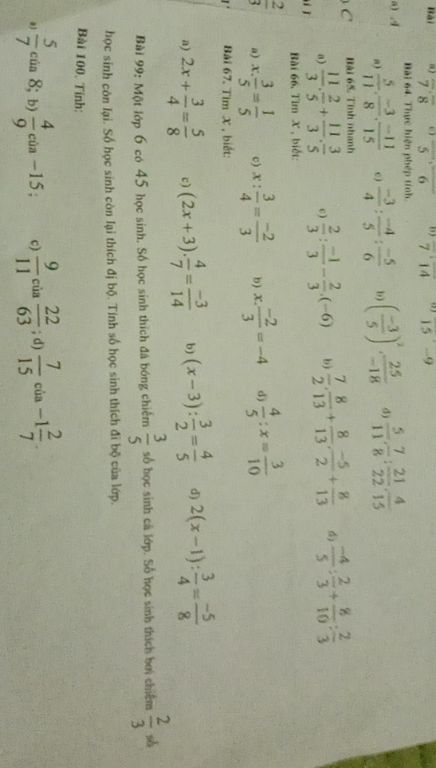 Bài 64. Thực hiện phép tính.
a) 5/11 · -3/8 · -11/15 c) -3/4 : -4/5 : -5/6 b) (-3/5)² · 25/-18 d) 5/11 · 7/8 : 21/22 · 4/15
Bài 65. Tính nhanh
a) 11/3 · 2/5 + 11/3 · 3/5 c) 2/3 : -1/3 - 2/3 · (-6) b) 7/2 · 8/13 + 8/13 · -5/2 + 8/13 d) -4/5 : 2/3 + 8/10 : 2/3
Bài 66. Tìm x, biết:
a) x · 3/5 = 1/5 c) x : 3/4 = -2/3 b) x · -2/3 = -4 d) 4/5 : x = 3/10
Bài 67. Tìm x, biết:
a) 2x + 3/4 = 5/8 c) (2x + 3) · 4/7 = -3/14 b) (x - 3) : 3/2 = 4/5 d) 2(x - 1) : 3/4 = -5/8
Bài 99: Một lớp 6 có 45 học sinh. Số học sinh thích đá bóng chiếm 3/5 số học sinh cả lớp. Số học sinh thích bơi chiếm 2/3 số
học sinh còn lại. Số học sinh còn lại thích đị bộ. Tính số học sinh thích đi bộ của lớp.
Bài 100. Tính:
a) 5/7 của 8; b) 4/9 của -15; c) 9/11 của 22/63; d) 7/15 của -1 2/7.